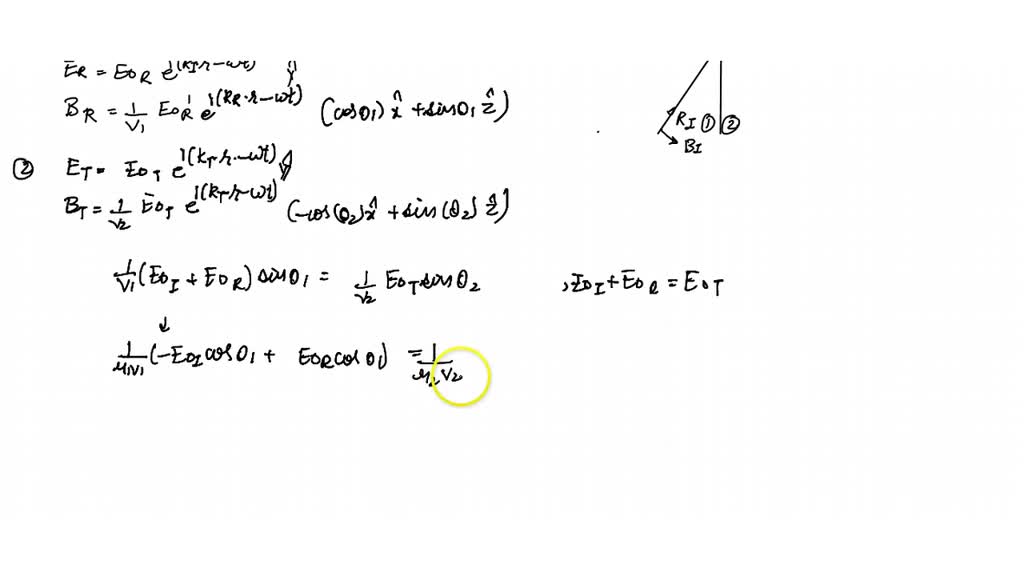 E_R = E_{0R} e^{i(k_I·r-ωt)} ŷ
B_R = 1/V_1 E_{0R} e^{i(k_R·r-ωt)} (cosθ_1) x̂ + sinθ_1 ẑ)
R_I ① ②
B_I
② E_T = E_{0T} e^{i(k_T·r-ωt)} ŷ
B_T = 1/V_2 E_{0T} e^{i(k_T·r-ωt)} (-cos(θ_2) x̂ + sin(θ_2) ẑ)
1/V_1 (E_{0I} + E_{0R}) sinθ_1 = 1/V_2 E_{0T} sinθ_2 , E_{0I} + E_{0R} = E_{0T}
↓
1/μ_1V_1 (-E_{0I} cosθ_1 + E_{0R} cosθ_1) = 1/μ_2V_2